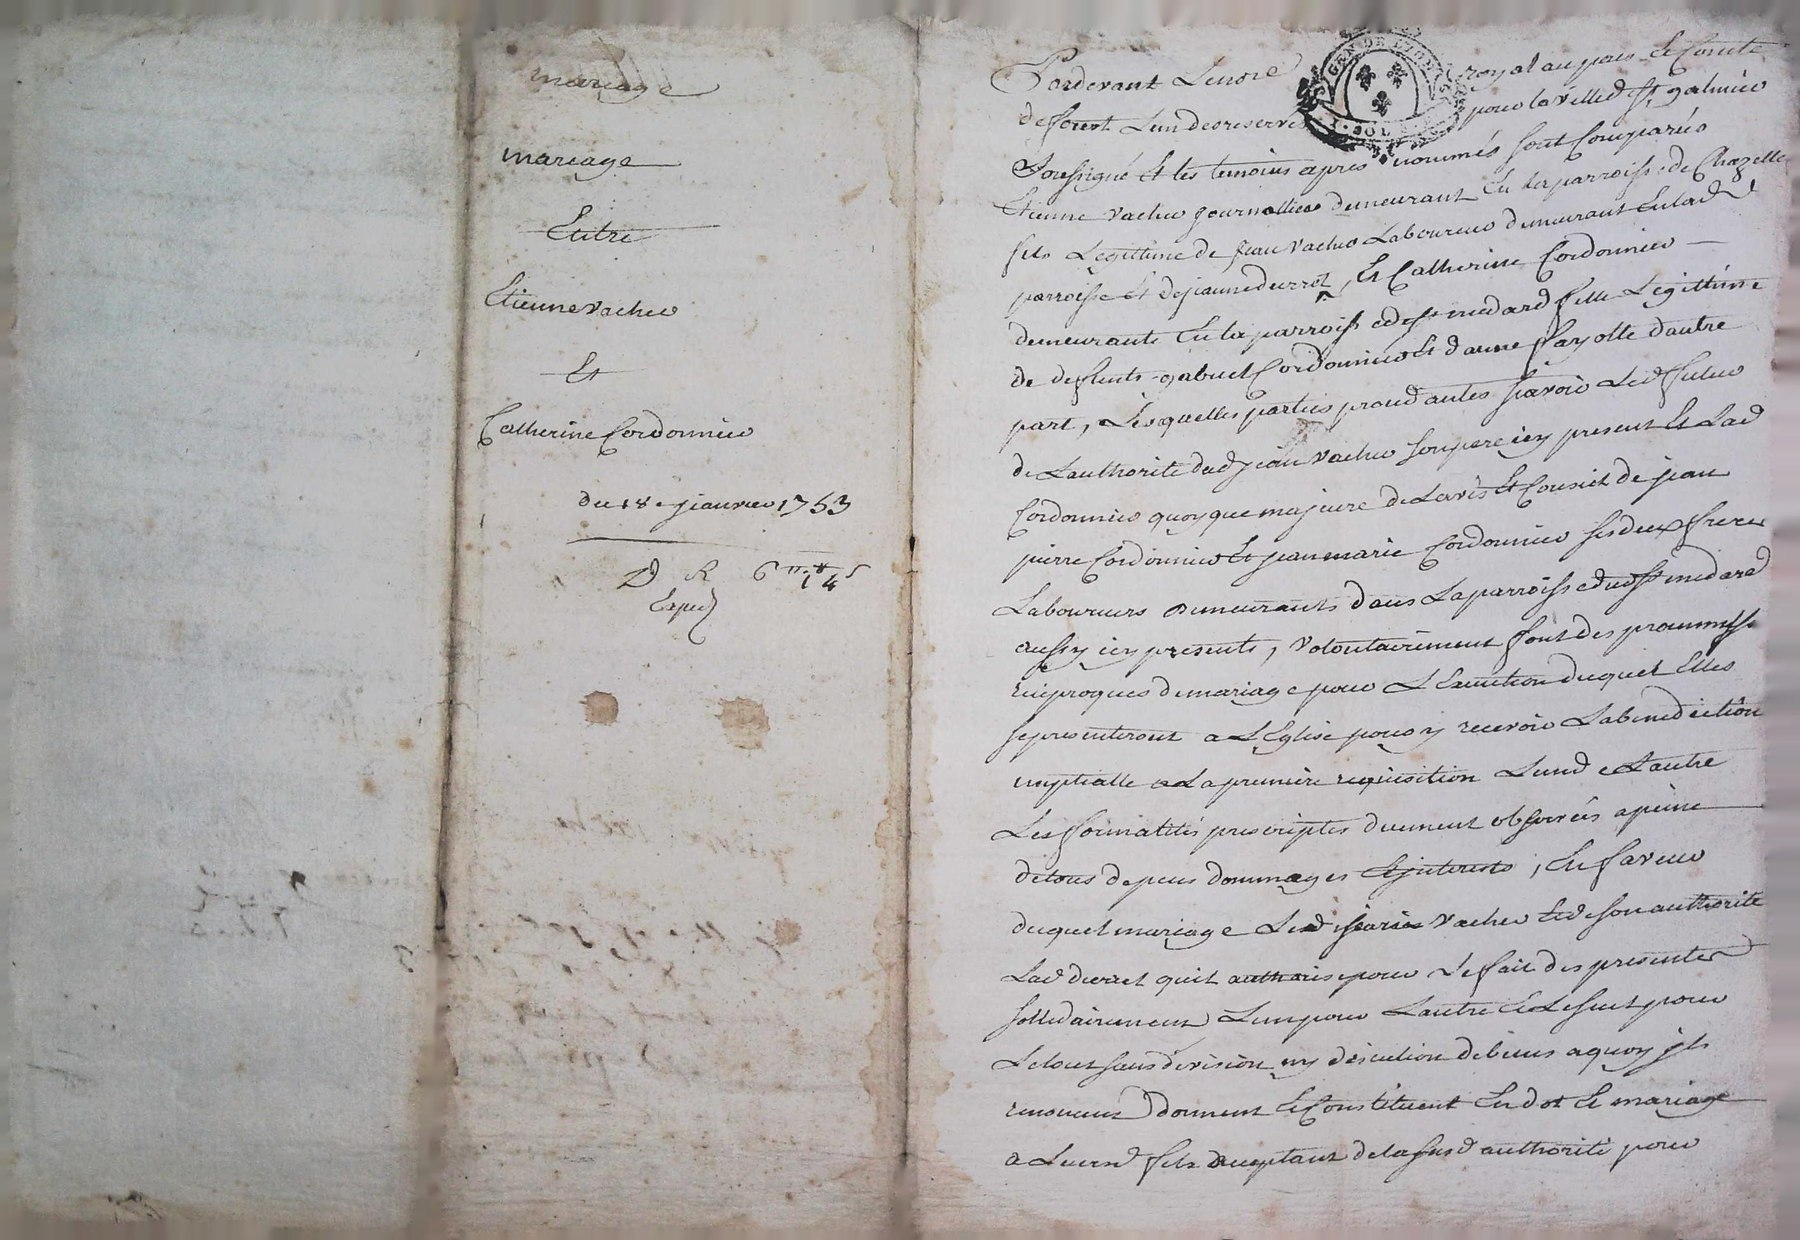 mariage
mariage
Entre
Etienne vacher
Et
Catherine Cordonnier
du 18e janvier 1753
D R 6 14 s
Exped
GEN DE LYON
SOLS
Pardevant Lenore royal au pais Et Comté
deforest Lun des reservés pour la ville de St galmier
Soussigné Et les temoins apres nommés sont Comparus
Etienne vacher journallier demeurant En la parroisse de Chazelle
fils Legittime de jean vacher Laboureur demeurant En lad
parroisse Et de jeanne durret, Et Catherine Cordonnier
demeurante En la parroisse de St medard fille Legittime
de deffunts gabriel Cordonnier Et d'anne fayolle dautre
part, Lesquelles parties procedantes sçavoir Led futur
de Lauthorité dud jean vacher son pere icy present Et Lad
Cordonnier quoyque majeure de Lavis Et Conseil de jean
pierre Cordonnier Et jean marie Cordonnier ses deux freres
Laboureurs demeurants dans La parroisse dud St medard
aussy icy presents, volontairement font des promesses
reciproques de mariage pour L Execution duquel Elles
se presenteront a L Eglise pour y recevoir La benediction
nuptialle a La premiere requisition Lun de Lautre
Les formalités prescriptes duement observées apeine
de tous depens dommages Et interests, En faveur
duquel mariage Led jean vacher Et de son authorité
Lad durret quil authorise pour Le fait des presentes
sollidairement Lun pour Lautre Et Le seul pour
Le tout sans division ny discution de biens a quoy jls
renoncent donnent Et Constituent En dot Et mariage
a Leurd fils acceptant de la susd authorité pour